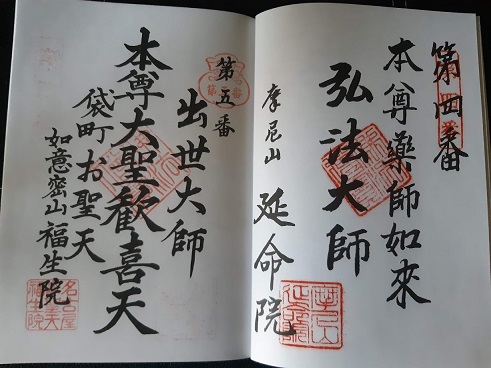 第四番
本尊藥師如來
弘法大師
摩尼山
延命院
第五番
出世大師
本尊大聖歓喜天
袋町お聖天
如意密山福生院